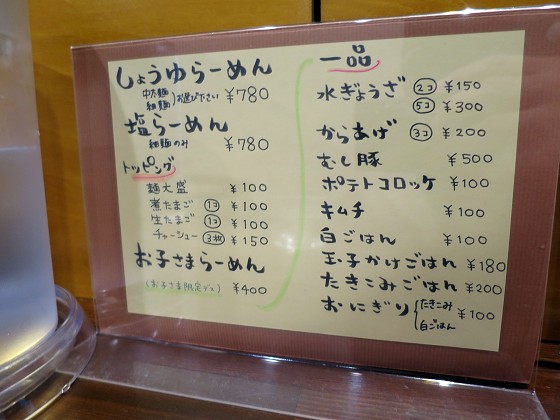 しょうゆらーめん
中太麺
細麺 お選び下さい ¥780
塩らーめん
細麺のみ ¥780
トッピング
麺大盛 ¥100
煮たまご 1コ ¥100
生たまご 1コ ¥100
チャーシュー 3枚 ¥150
お子さまらーめん
(お子さま限定です) ¥400
一品
水ぎょうざ 2コ ¥150
5コ ¥300
からあげ 3コ ¥200
むし豚 ¥500
ポテトコロッケ ¥100
キムチ ¥100
白ごはん ¥100
玉子かけごはん ¥180
たきこみごはん ¥200
おにぎり たきこみ ¥100
白ごはん